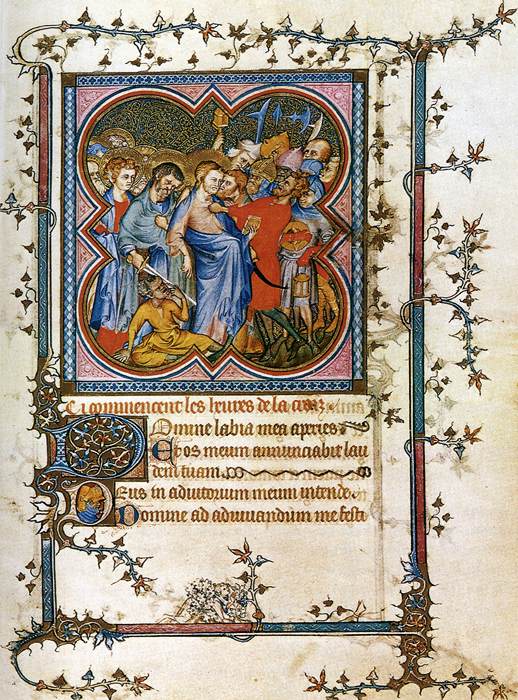 Ci commencent les heures de la croiz
Domine labia mea aperies
Et os meum annunciabit lau
dem tuam
Deus in adiutorium meum intende
Domine ad adiuuandum me festi